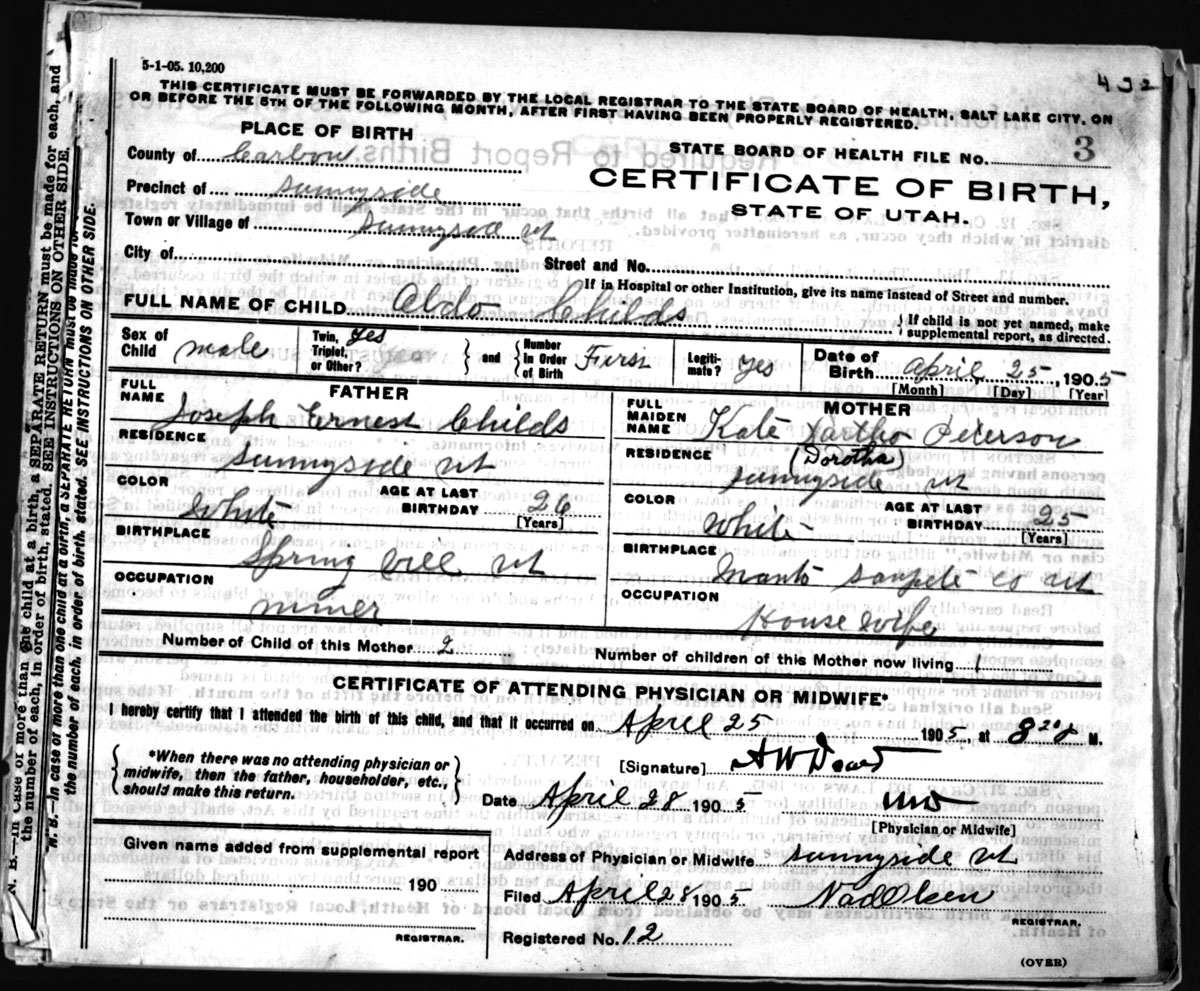 432
5-1-05. 10,200
THIS CERTIFICATE MUST BE FORWARDED BY THE LOCAL REGISTRAR TO THE STATE BOARD OF HEALTH, SALT LAKE CITY, ON
OR BEFORE THE 5TH OF THE FOLLOWING MONTH, AFTER FIRST HAVING BEEN PROPERLY REGISTERED.
PLACE OF BIRTH
STATE BOARD OF HEALTH FILE NO. 3
County of Carbon
CERTIFICATE OF BIRTH,
Precinct of Sunnyside
STATE OF UTAH.
Town or Village of Sunnyside ut
City of
Street and No.
If in Hospital or other Institution, give its name instead of Street and number.
FULL NAME OF CHILD Aldo Childs
If child is not yet named, make
supplemental report, as directed.
Sex of
Child male
Twin, yes
Triplet,
or Other?
and
Number
in Order
of Birth First
Legiti-
mate? yes
Date of
Birth April 25, 1905
[Month] [Day] [Year]
FATHER
FULL
NAME
Joseph Ernest Childs
RESIDENCE
Sunnyside ut
COLOR
White
AGE AT LAST
BIRTHDAY 26
[Years]
BIRTHPLACE
Spring vill ut
OCCUPATION
miner
MOTHER
FULL
MAIDEN
NAME
Kate Peterson
(Dorotha)
RESIDENCE
Sunnyside ut
COLOR
White
AGE AT LAST
BIRTHDAY 25
[Years]
BIRTHPLACE
Manti sanpete co ut
OCCUPATION
House wife
Number of Child of this Mother 2
Number of children of this Mother now living 1
CERTIFICATE OF ATTENDING PHYSICIAN OR MIDWIFE*
I hereby certify that I attended the birth of this child, and that it occurred on April 25 1905, at 8 M.
*When there was no attending physician or
midwife, then the father, householder, etc.,
should make this return.
[Signature] A W
Date April 28 1905
MD
[Physician or Midwife]
Given name added from supplemental report
190
REGISTRAR.
Address of Physician or Midwife Sunnyside ut
Filed April 28 1905
Olsen
REGISTRAR.
Registered No. 12
(OVER)
N. B.—In case of more than one child at a birth, a SEPARATE RETURN must be made for each, and
the number of each, in order of birth, stated. SEE INSTRUCTIONS ON OTHER SIDE.
N. B.—In case of more than one child at a birth, a SEPARATE RETURN must be made for
the number of each, in order of birth, stated. SEE INSTRUCTIONS ON OTHER SIDE.